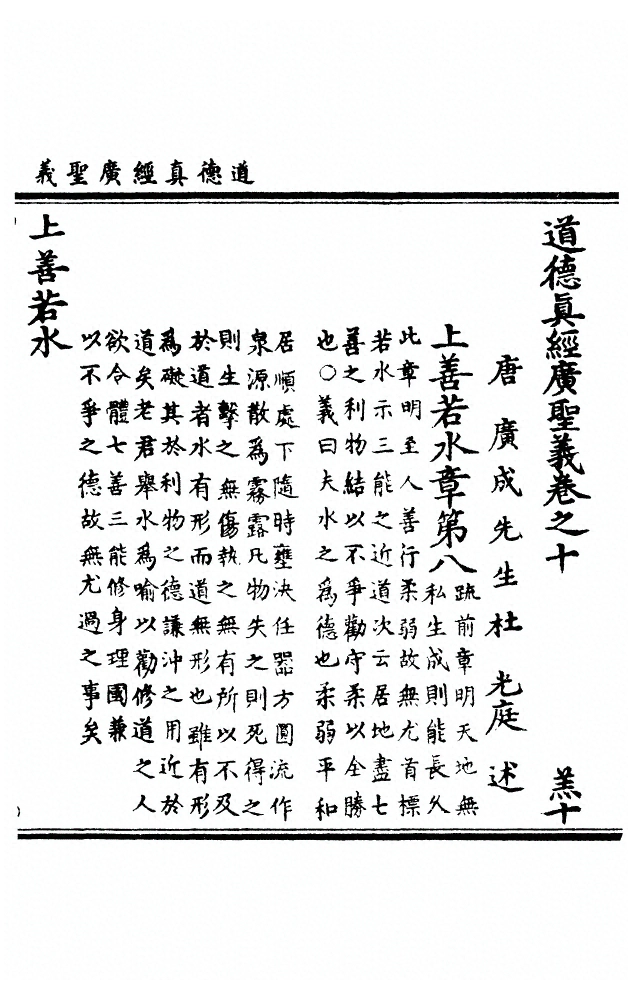 道德真經廣聖義
道德眞經廣聖義卷之十
羔十
唐廣成先生杜光庭述
上善若水章第八
疏前章明天地無
私生成則能長久
此章明至人善行柔弱故無尤首標
若水示三能之近道次云居地盡七
善之利物結以不爭勸守柔以全勝
也○義曰夫水之爲德也柔弱平和
居順處下隨時壅決任器方圓流作
泉源散爲霧露凡物失之則死得之
則生擊之無傷執之無有所以不及
於道者水有形而道無形也雖有形
爲礙其於利物之德謙沖之用近於
道矣老君舉水爲喻以勸修道之人
欲令體七善三能修身理國兼
以不爭之德故無尤過之事矣
上善若水